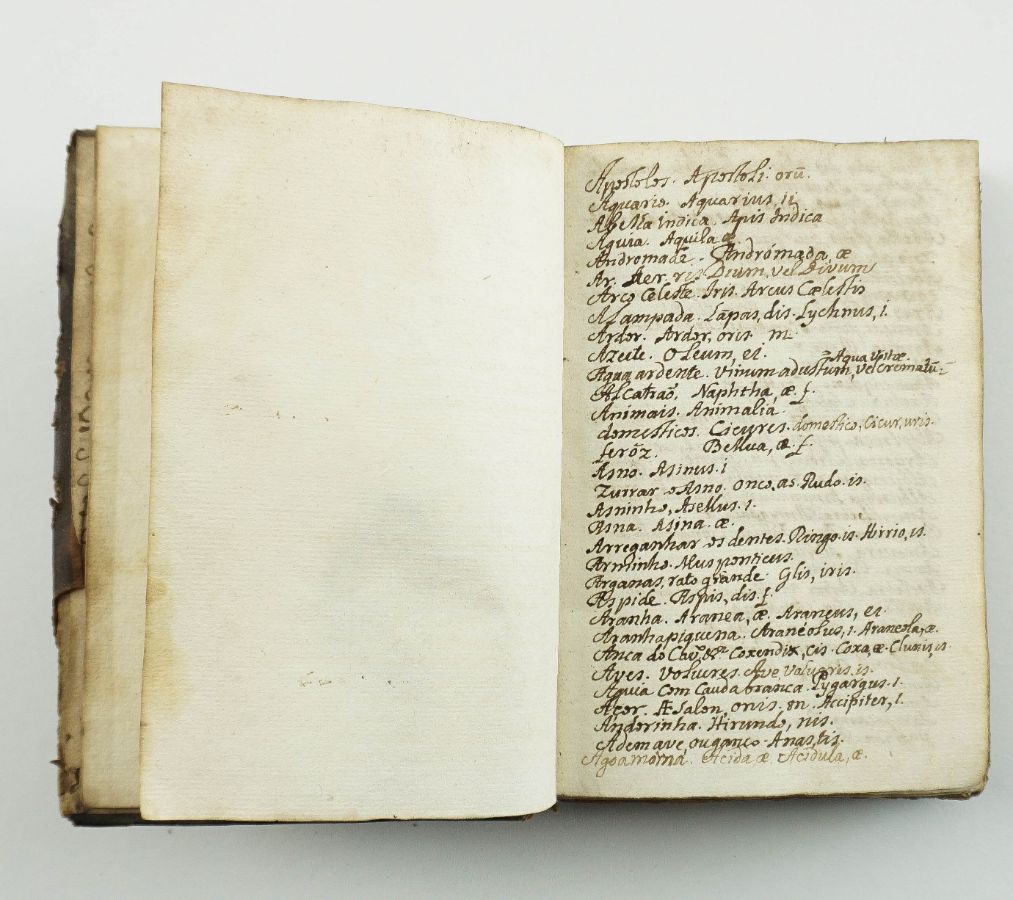 Apostolos. Apostoli. orū.
Aquario. Aquarius, ii
Abelha indica. Apis Indica
Aguia. Aquila æ
Andromade. Andrómada, æ
Ar. Aer. ris Dium, vel Divum
Arco Celeste. Iris. Arcus Cælestis
Alampada. Lāpas, dis. Lychnus, i.
Ardor. Ardor, oris. m.
Azeite. Oleum, ei. Aqua vitæ.
Agua ardente. Vinum adustum, vel crematū.
Alcatraõ. Naphtha, æ. f.
Animais. Animalia.
domesticos. Cicures. domestico, Cicur, uris.
ferōz. Bellua, æ. f.
Asno. Asinus. i
Zurrar o Asno. Onco, as. Rudo. is.
Asninho, Asellus. i.
Asna. Asina. æ.
Arreganhar os dentes. Ringo. is. Hirrio, is.
Arminho. Mus ponticus.
Arganas, rato grande. Glis, iris.
Aspide. Aspis, dis. f.
Aranha. Aranea, æ. Araneus, ei.
Aranha piquena. Araneólus, i. Araneola, æ.
Anca do Coxendix, cis. Coxa, æ. Clunis, is
Aves. Volucres. Ave Volucris. is.
Aguia com Cauda branca. Pygargus. i.
Açor. Æsalon, onis. m. Accipiter, i.
Andorinha. Hirundo, nis.
Adem ave, ou ganço. Anas, tis.
Agoa morna. Acida æ. Acidula, æ.